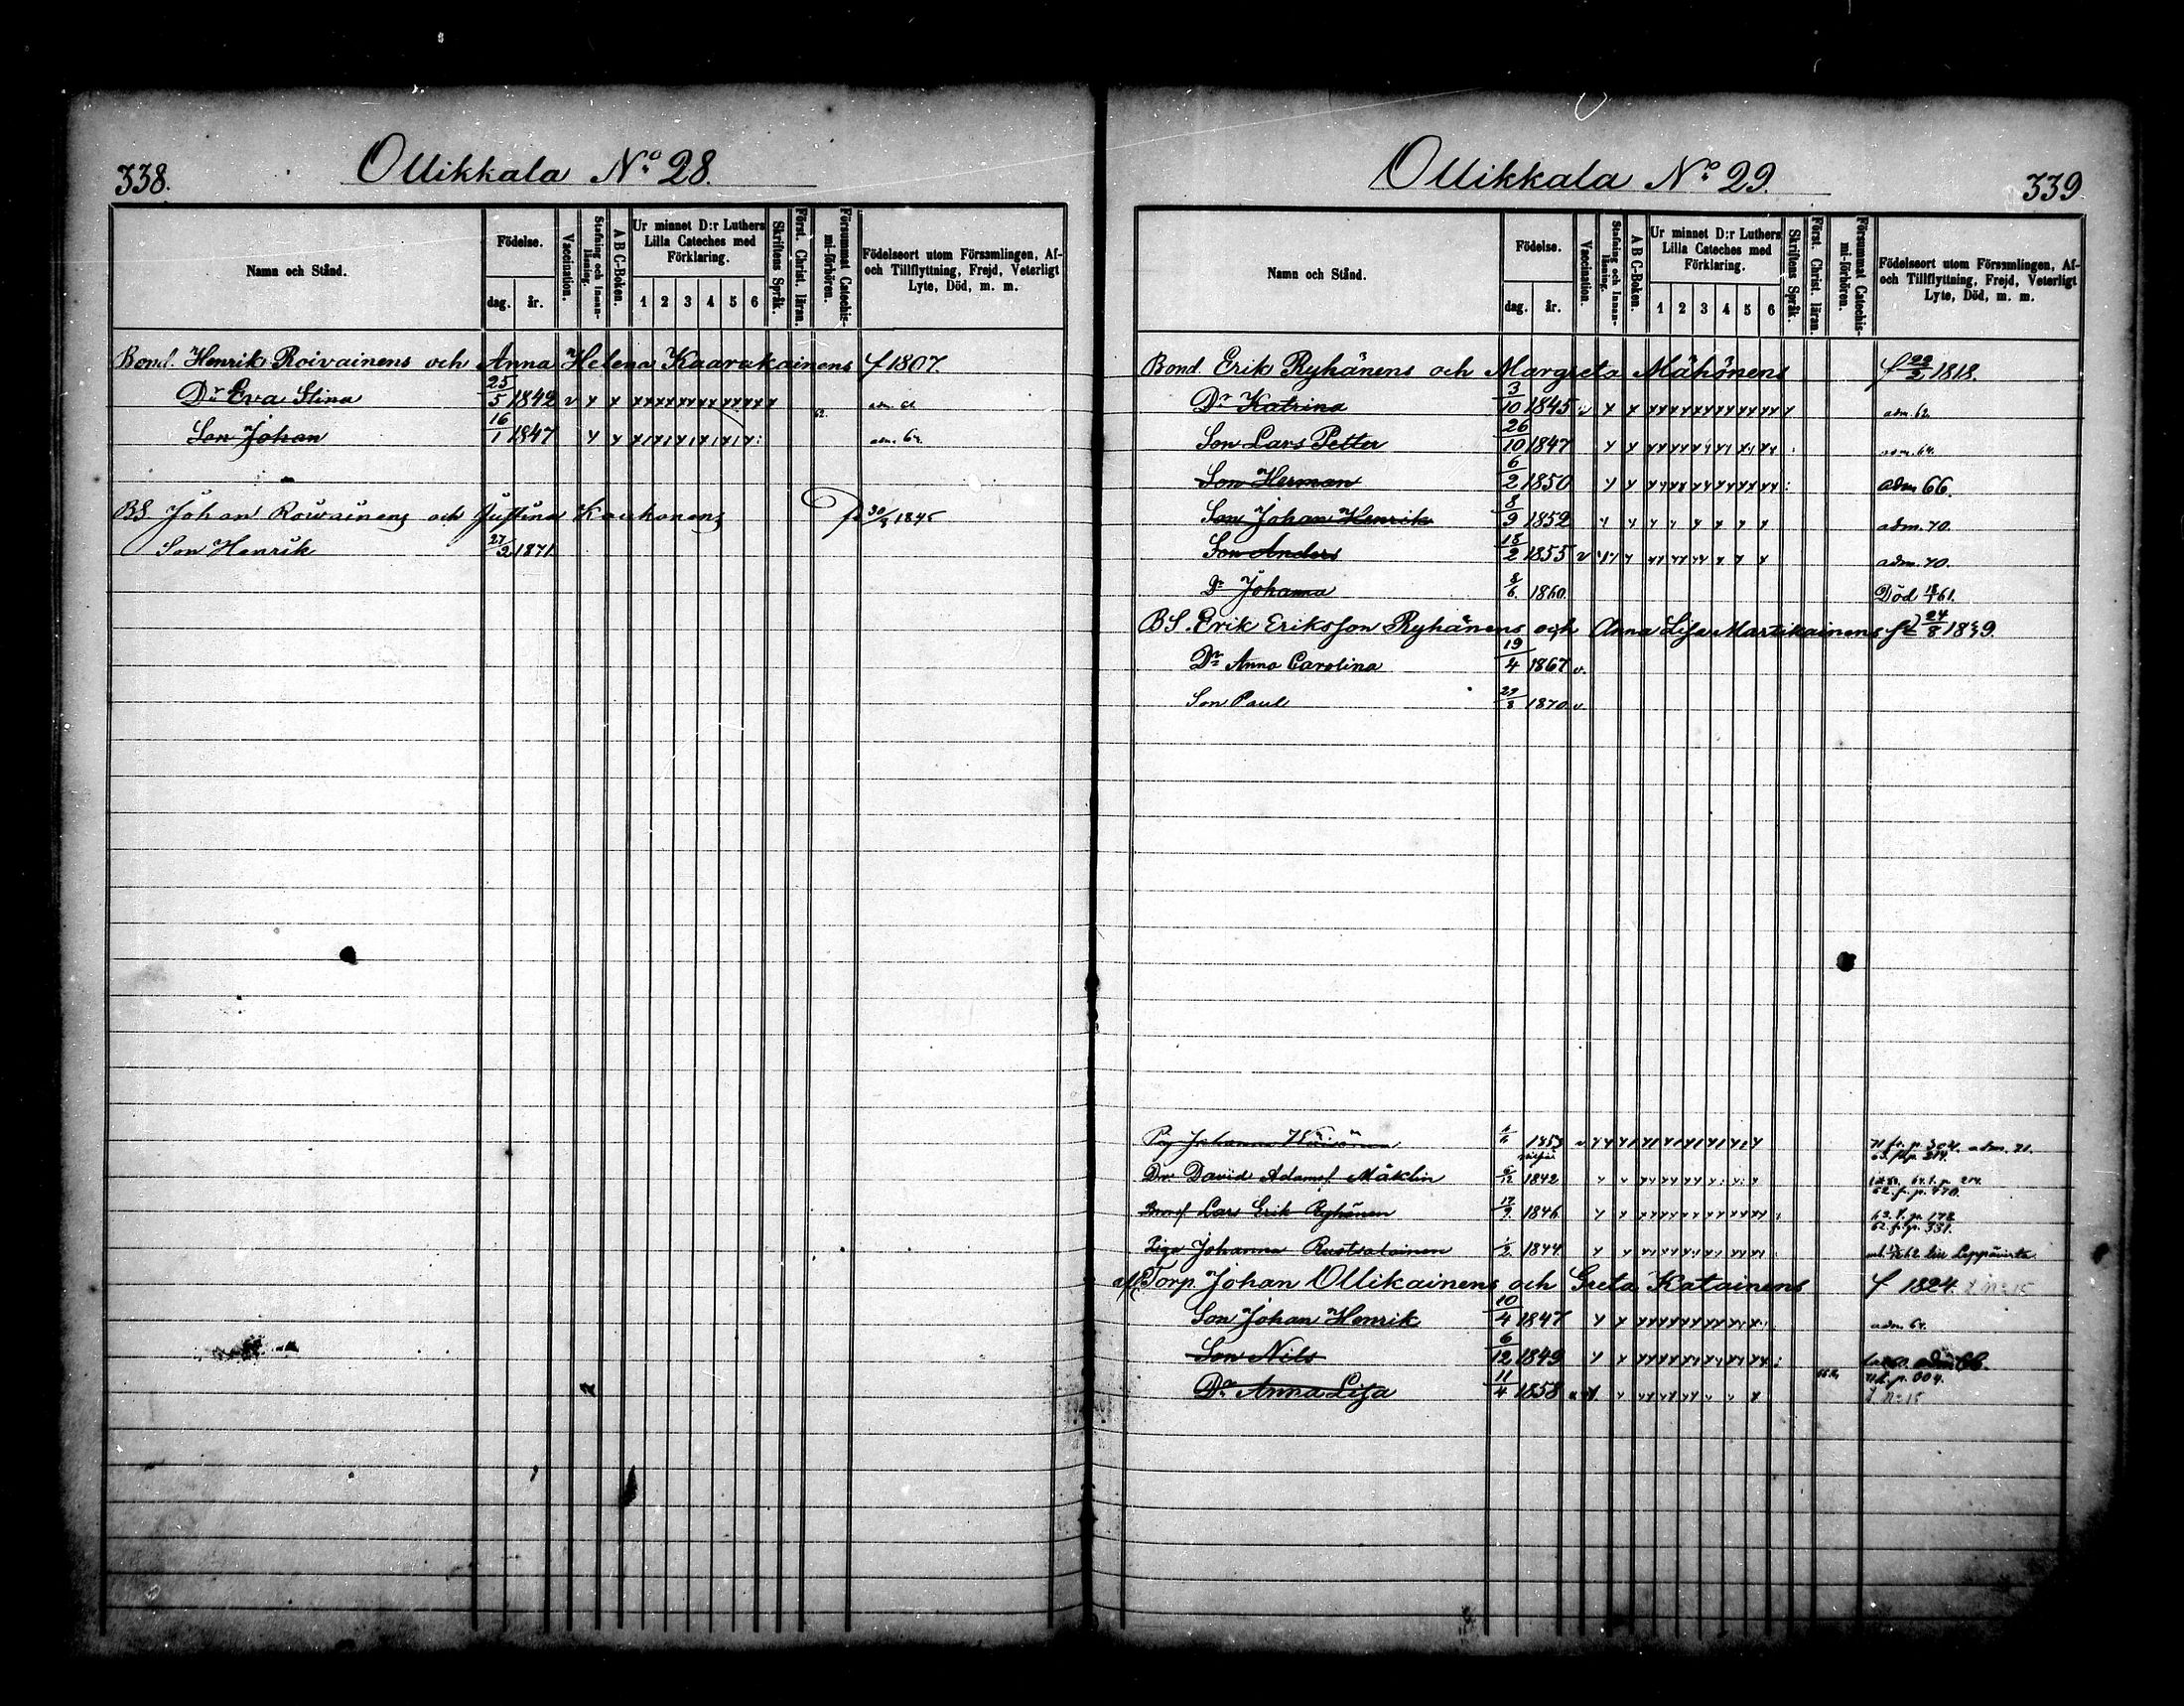 338.
Ollikkala No 28.
Namn och Stånd.
Födelse.
dag. år.
Vaccination.
Stafning och Innan-läsning.
A B C-Boken.
Ur minnet D:r Luthers Lilla Cateches med Förklaring.
1 2 3 4 5 6
Skriftens Språk.
Först. Christ. läran.
Försummat Catechis-mi-förhören.
Födelseort utom Församlingen, Af- och Tillflyttning, Frejd, Veterligt Lyte, Död, m. m.
Bond. Henrik Roivainens och Anna Helena Kaarakainens f 1807.
Dr Eva Stina 25/5 1842 v
Son Johan 16/1 1847 adm. 64.
BS. Johan Roivainens och Justina Koukonens 1845
Son Henrik 27/2 1871
Ollikkala No 29.
339
Namn och Stånd.
Födelse.
dag. år.
Vaccination.
Stafning och Innan-läsning.
A B C-Boken.
Ur minnet D:r Luthers Lilla Cateches med Förklaring.
1 2 3 4 5 6
Skriftens Språk.
Först. Christ. läran.
Försummat Catechis-mi-förhören.
Födelseort utom Församlingen, Af- och Tillflyttning, Frejd, Veterligt Lyte, Död, m. m.
Bond. Erik Ryhänens och Margreta Mähönens f 22/2 1818.
Dr Katrina 3/10 1845 v adm. 62.
Son Lars Petter 26/10 1847 adm. 64.
Son Herman 6/2 1850 adm 66.
Son Johan Henrik 8/9 1852 adm. 70.
Son Anders 18/2 1855 v adm. 70.
Dr Johanna 8/6 1860. Död 61.
BS. Erik Eriksson Ryhänens och Anna Lisa Martikainens f 24/8 1839.
Dr Anna Carolina 19/4 1867 v.
Son Paul 1870 v.
Johanna 1853 adm. 71.
Dr David Adamsf Mäklin 1842
Bonds Lars Erik Ryhänen 17/9 1846
Piga Johanna Rustsalainen 1844 62 till Leppävirta
Torp. Johan Ollikainens och Greta Katainens f 1824.
Son Johan Henrik 10/4 1847 adm. 64.
Son Nils 6/12 1849 adm 66.
Dr Anna Lisa 11/4 1858